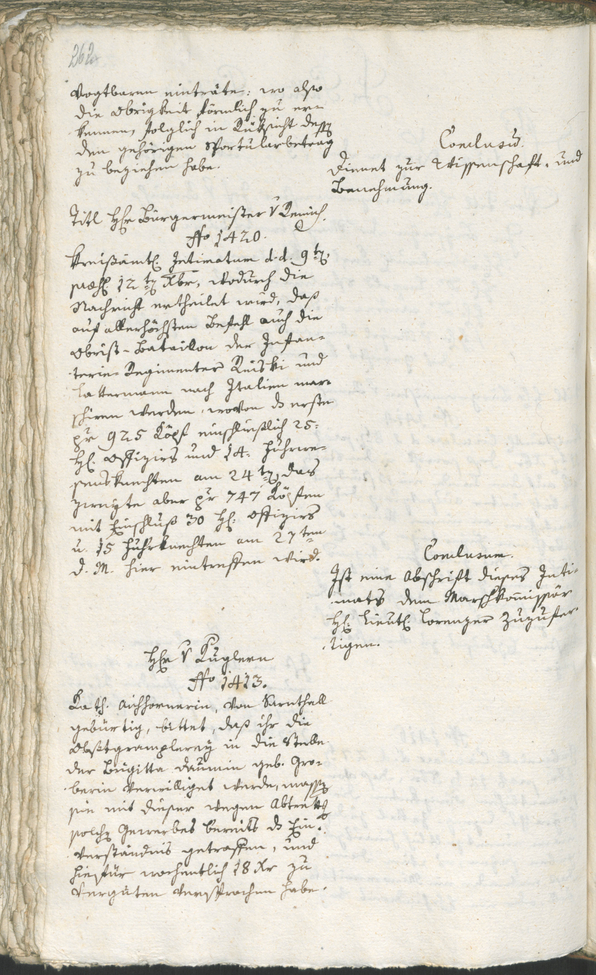 262.
Vogtbaren einträte: wo also
die Obrigkeit förmlich zu ern
kennen, folglich in Rüksicht deß
den gehörigen Sportularbetrag
zu beziehen habe.
Conclusum.
Dienet zur Wissenschaft, und
Benehmung.
Titl Hhr Bürgermeister v
No 1420.
Kreisämtl. Intimatum d. d. 9ten
12ten Xbr, wodurch die
Nachricht ertheilet wird, daß
auf allerhöchsten Befehl auch die
Obrist-Bataillon der Infan-
terie-Regimenter Reiski und
Lattermann nach Italien mar-
schiren werden, wovon das erste
pr 925 Köpf einschließlich 25:
HH. Offiziers und 14. Fuhrwe-
sensknechten am 24ten, das
zweyte aber pr 747 Köpfen
mit Einschluß 30 HH: Offiziers
u. 15 Fuhrknechten am 27ten
d. M. hier eintreffen wird.
Conclusum.
Ist eine Abschrift dieses Inti-
mats dem Marschkommissär
H. Lieut. Lorenzer zuzufer-
tigen.
Hhr v Kuglern
No 1413.
Kath. Aichhornerin, von Sarnthall
gebürtig, bittet, daß ihr die
Obstgramplerey in die Stelle
der Brigitta Daumin geb. Gro-
berin verwilliget werde, massen
sie mit dieser wegen Abtrettung
solchen Gewerbes bereits das Ein-
verständnis getroffen, und
hiefür wochentlich 18 Xr zu
vergüten versprochen habe.